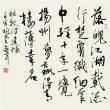 落魄江湖載酒
行楚腰纖細掌
中輕十年一覺
揚州夢贏得青
樓薄倖名